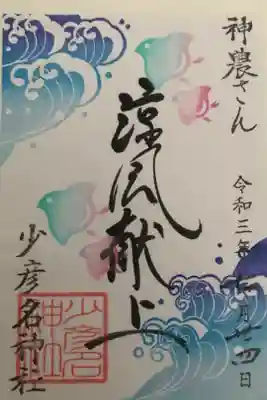 神農さん
令和三年七月廿四日
涼風献上
少彦名神社
少彦名
神社